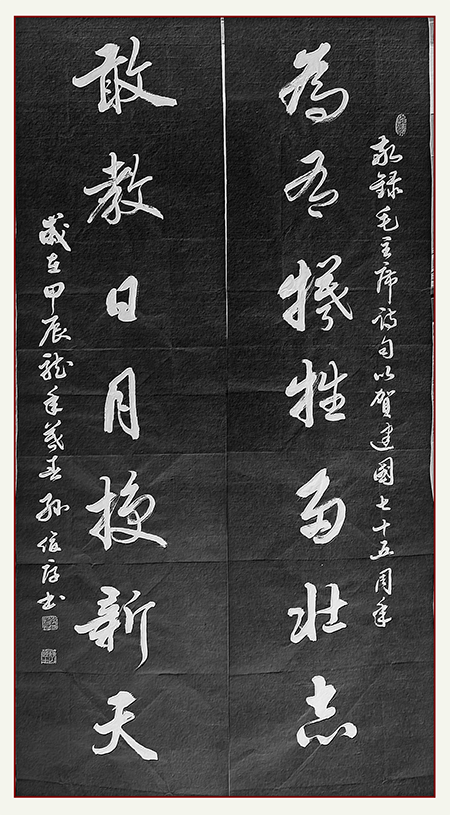 敬錄毛主席詩句以賀建國七十五周年
為有犧牲多壯志
敢教日月換新天
歲在甲辰龍年春孫書